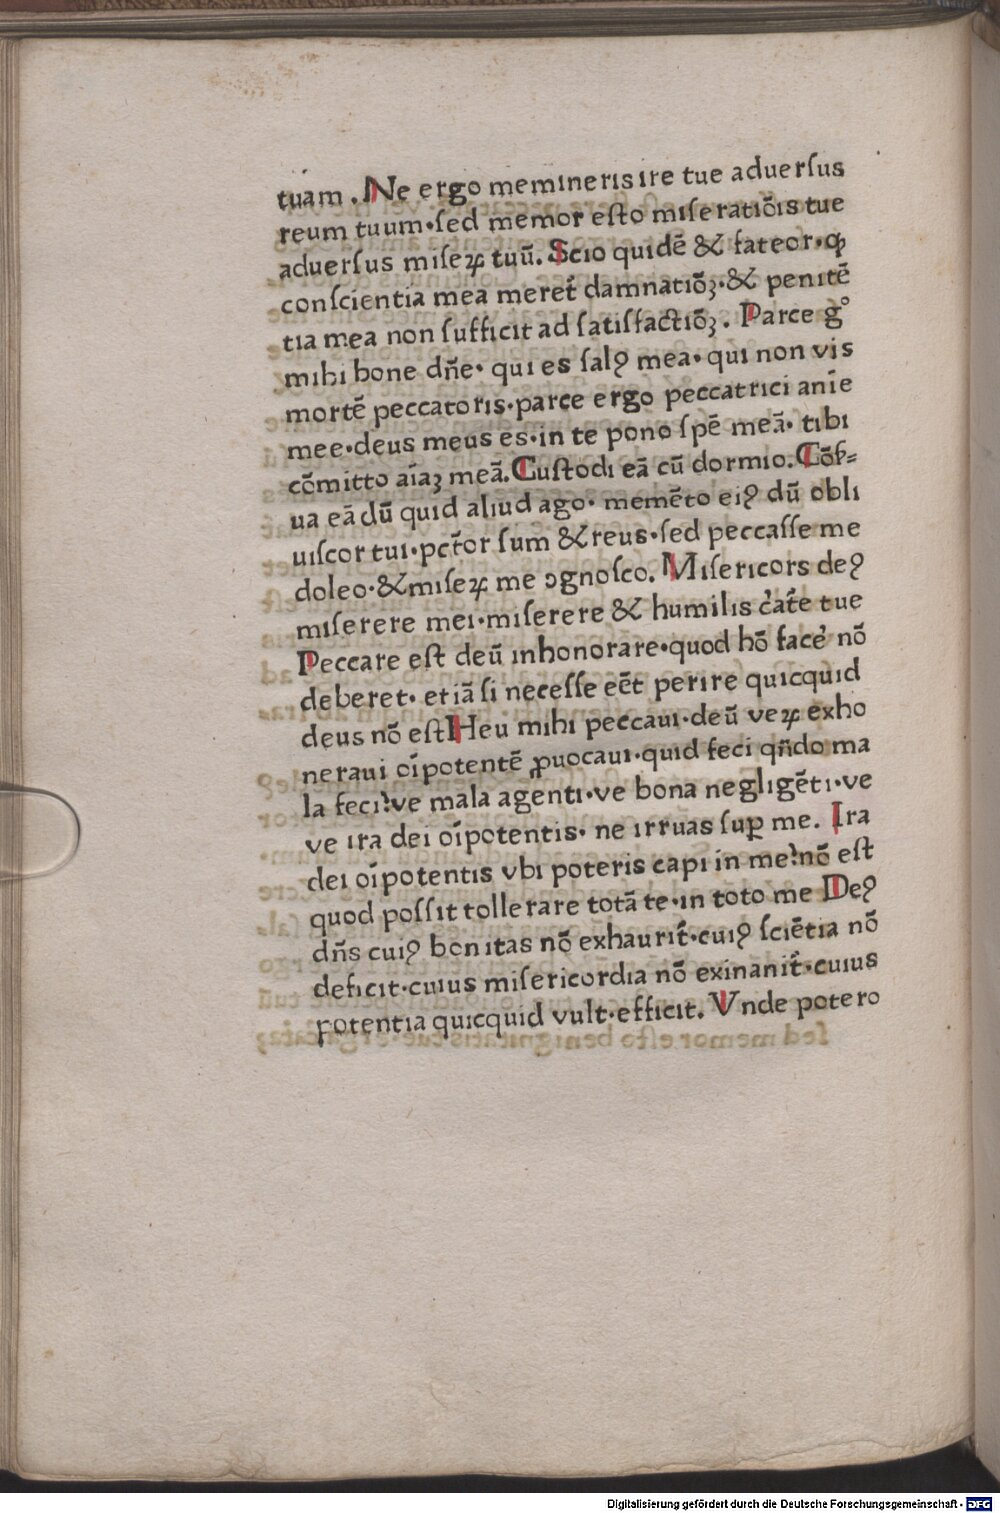 tuam. Ne ergo memineris ire tue aduerſus
reum tuum·ſed memor eſto miſeratiõis tue
aduerſus miſeꝝ tuũ. Scio quidẽ & fateor·ꝙ
conſcientia mea meret̃ damnatiõꝫ·& penitẽ
tia mea non ſufficit ad ſatiſfactiõꝫ. Parce g°
mihi bone dñe· qui es ſalꝰ mea· qui non vis
mortẽ peccatoris·parce ergo peccatrici anĩe
mee·deus meus es·in te pono ſpẽ meã· tibi
cõmitto aĩaꝫ meã. Cuſtodi eã cũ dormio. Cõſ⸗
ua eã dũ quid aliud ago· memẽto eiꝰ dũ obli
uiſcor tui·pct̃or ſum & reus·ſed peccaſſe me
doleo·& miſeꝝ me ↄgnoſco. Miſericors deꝰ
miſerere mei·miſerere & humilis c̓at̃e tue
Peccare eſt deũ inhonorare·quod hõ face᷑ nõ
deberet· etiã ſi neceſſe eẽt perire quicquid
deus nõ eſt Heu mihi peccaui·deũ veꝝ exho
neraui oĩpotentẽ ꝓuocaui·quid feci qñdo ma
la feci?ve mala agenti·ve bona negligẽti·ve
ve ira dei oĩpotentis· ne irruas ſuꝑ me. Ira
dei oĩpotentis vbi poteris capi in me?nõ eſt
quod poſſit tollerare totã te·in toto me Deꝰ
dñs cuiꝰ bonitas nõ exhaurit̃·cuiꝰ ſciẽtia nõ
deficit·cuius miſericordia nõ exinanit̃·cuius
potentia quicquid vult·efficit. Vnde potero
Digitalisierung gefördert durch die Deutsche Forschungsgemeinschaft - DFG